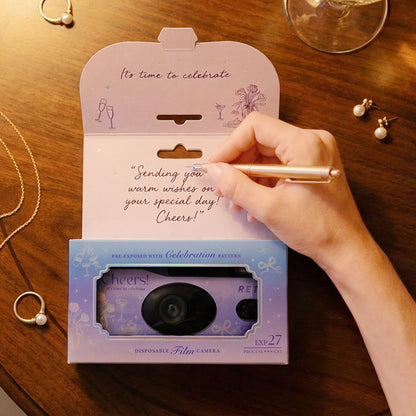 It's time to celebrate
"Sending you
warm wishes on
your special day!
Cheers!"
PRE-EXPOSED WITH Celebration PATTERN
Cheers!
RET
DISPOSABLE Film CAMERA
EXP 27
PROCESS C41